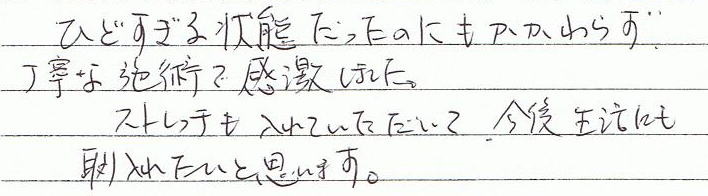 ひどすぎる状態だったのにもかかわらず
丁寧な施術で感激しました。
ストレッチも入れていただいて 今後生活にも
取入れたいと思います。